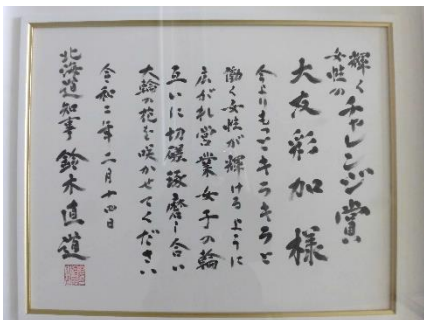 輝く
女性の
チャレンジ賞
大友彩加様
今よりもっとキラキラと
働く女性が輝けるように
広がれ営業女子の輪
互いに切磋琢磨し合い
大輪の花を咲かせてください
令和二年二月十四日
北海道知事 鈴木直道